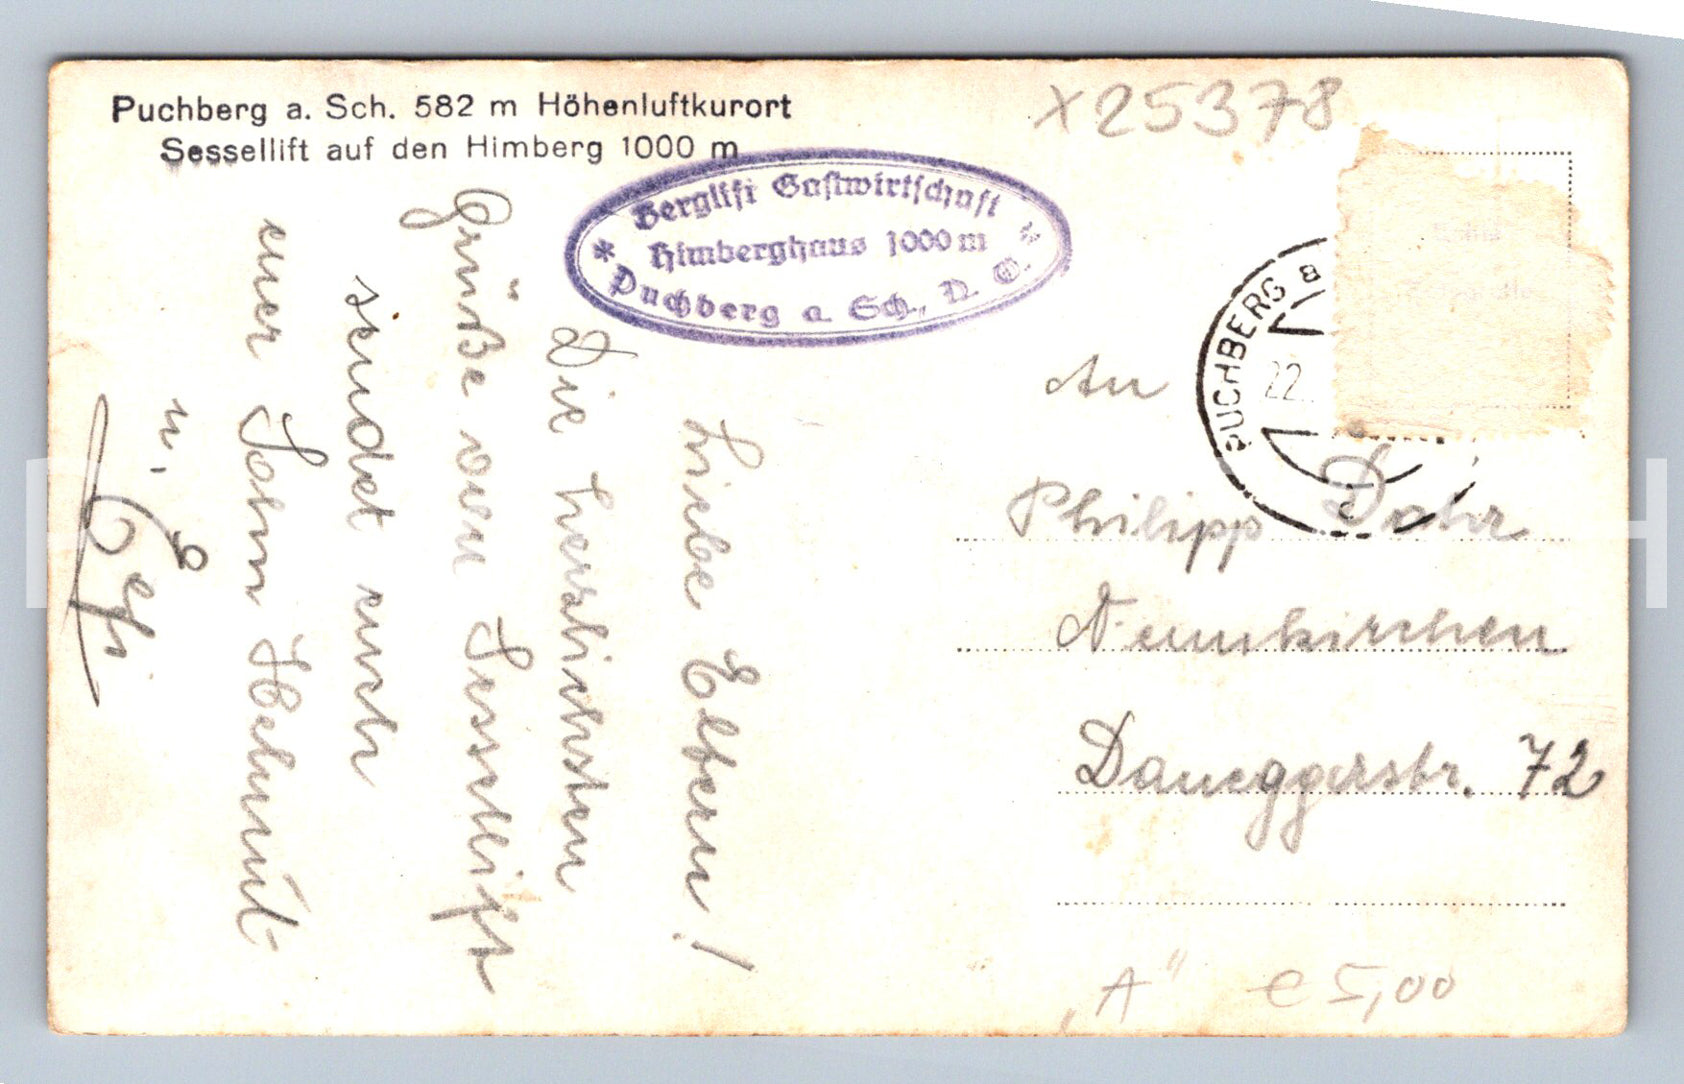 Puchberg a. Sch. 582 m Höhenluftkurort
Sessellift auf den Himberg 1000 m
X25378
Berglift Gastwirtschaft
Himberghaus 1000 m
Puchberg a. Sch., N. Ö.
PUCHBERG a
22.
Liebe Eltern!
Die herzlichsten
Grüße vom Sessellift
sendet euch
euer Sohn Helmut
u.
An
Philipp Dohr
Neunkirchen
Daneggerstr. 72
„A" € 5,00